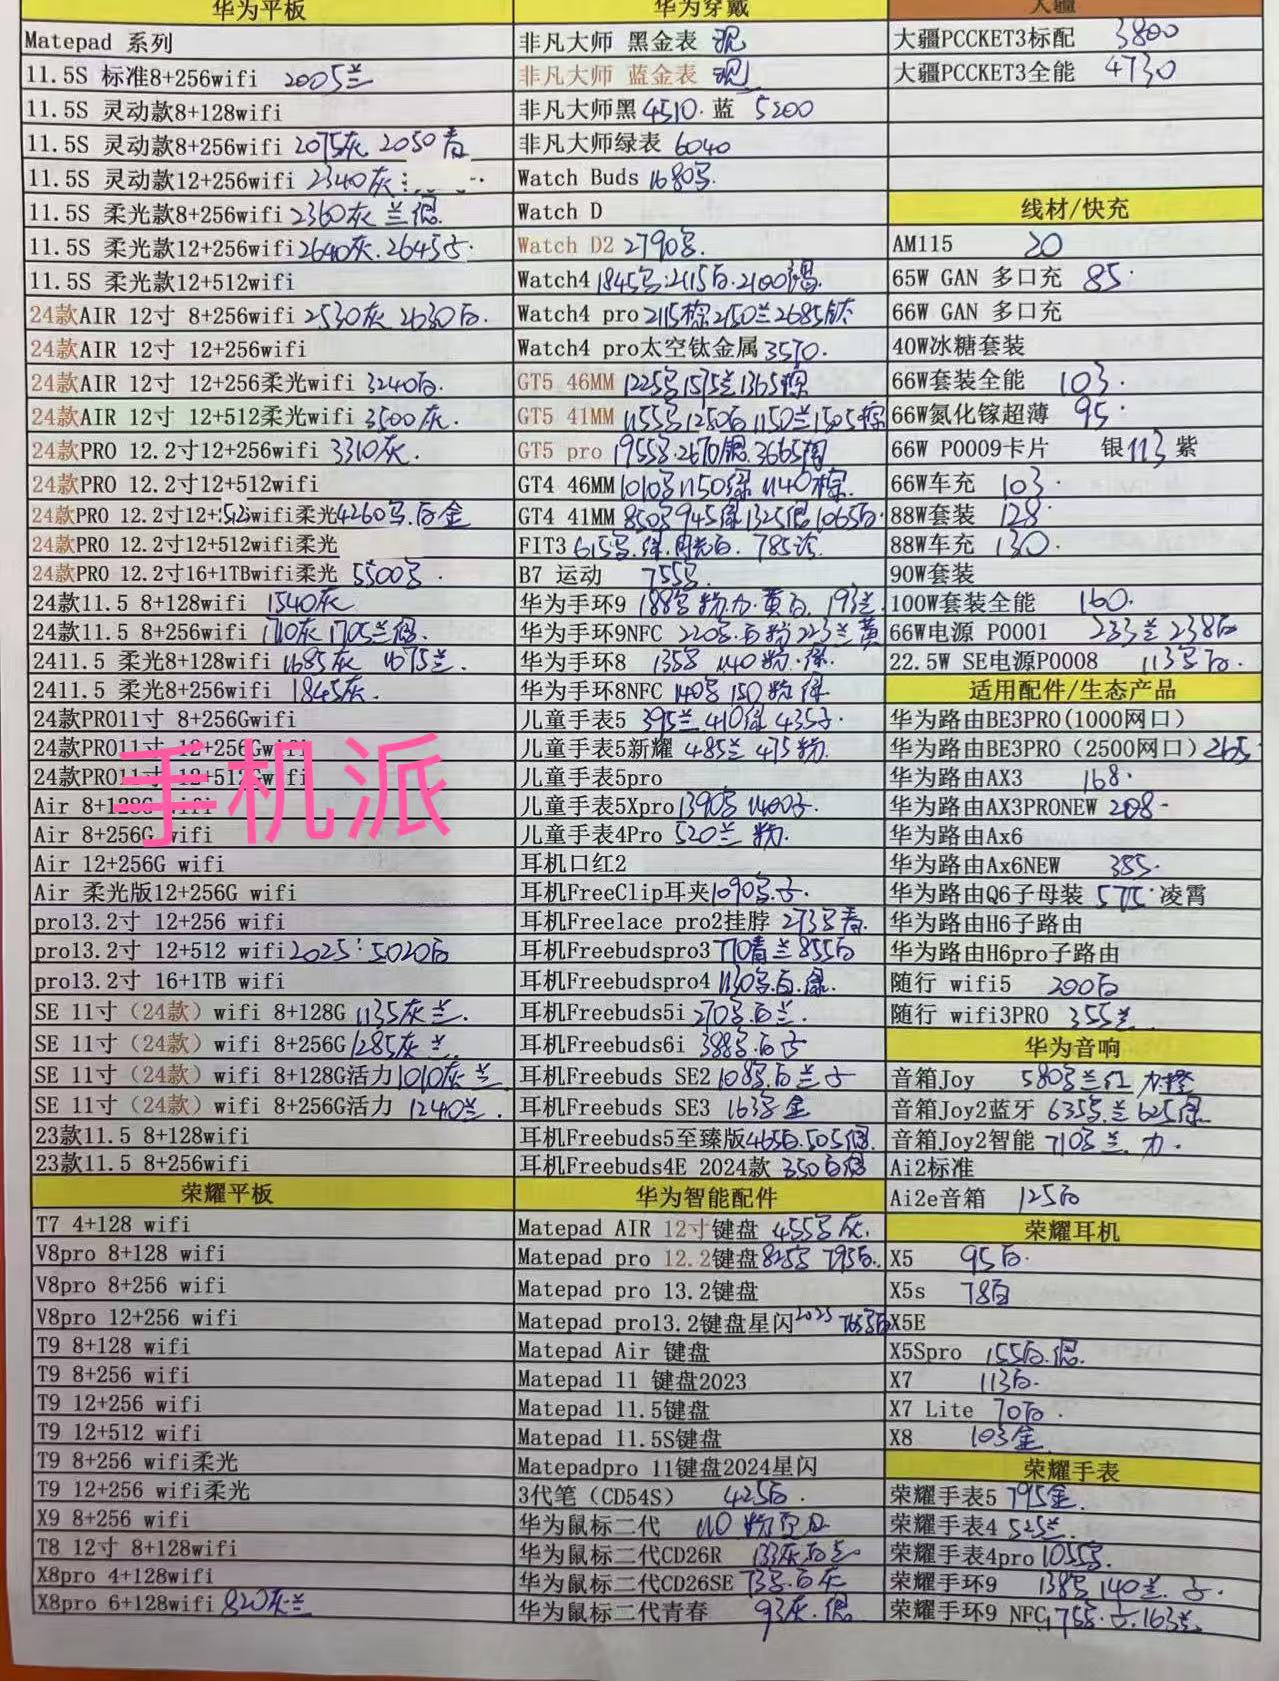 华为平板
Matepad 系列
11.5S 标准8+256wifi 2005兰
11.5S 灵动款8+128wifi
11.5S 灵动款8+256wifi 2075灰 2050青
11.5S 灵动款12+256wifi 2340灰
11.5S 柔光款8+256wifi 2360灰 兰
11.5S 柔光款12+256wifi 2640灰. 2645
11.5S 柔光款12+512wifi
24款AIR 12寸 8+256wifi 2530灰 2630白.
24款AIR 12寸 12+256wifi
24款AIR 12寸 12+256柔光wifi 3240白.
24款AIR 12寸 12+512柔光wifi 3500灰.
24款PRO 12.2寸12+256wifi 3310灰.
24款PRO 12.2寸12+512wifi
24款PRO 12.2寸12+512wifi柔光4260 白金
24款PRO 12.2寸12+512wifi柔光
24款PRO 12.2寸16+1TBwifi柔光 5500
24款11.5 8+128wifi 1540灰
24款11.5 8+256wifi 1710灰 1705兰
2411.5 柔光8+128wifi 1685灰 1675兰.
2411.5 柔光8+256wifi 1845灰.
24款PRO11寸 8+256Gwifi
24款PRO11寸 12+256Gwifi
24款PRO11寸 12+512Gwifi
手机派
Air 8+128G wifi
Air 8+256G wifi
Air 12+256G wifi
Air 柔光版12+256G wifi
pro13.2寸 12+256 wifi
pro13.2寸 12+512 wifi 2025: 5020白
pro13.2寸 16+1TB wifi
SE 11寸（24款）wifi 8+128G 1135灰兰.
SE 11寸（24款）wifi 8+256G 1285灰兰
SE 11寸（24款）wifi 8+128G活力 1010灰兰
SE 11寸（24款）wifi 8+256G活力 1240兰.
23款11.5 8+128wifi
23款11.5 8+256wifi
荣耀平板
T7 4+128 wifi
V8pro 8+128 wifi
V8pro 8+256 wifi
V8pro 12+256 wifi
T9 8+128 wifi
T9 8+256 wifi
T9 12+256 wifi
T9 12+512 wifi
T9 8+256 wifi柔光
T9 12+256 wifi柔光
X9 8+256 wifi
T8 12寸 8+128wifi
X8pro 4+128wifi
X8pro 6+128wifi 820灰兰
华为穿戴
非凡大师 黑金表 现
非凡大师 蓝金表 现
非凡大师黑 4510. 蓝 5200
非凡大师绿表 6040
Watch Buds 1680
Watch D
Watch D2 2790
Watch4 1845 2115白.2100
Watch4 pro 2115棕2150兰2685钛
Watch4 pro太空钛金属 3570.
GT5 46MM 1225 1575兰1365棕
GT5 41MM 1155 1250白1150兰1505棕
GT5 pro 1955 2670银.3665陶
GT4 46MM 1010 1150绿 1140棕.
GT4 41MM 850 945绿 1325银1065白.
FIT3 615 785
B7 运动 755
华为手环9 188 粉 黄白. 193兰
华为手环9NFC 220 白粉 223兰黄
华为手环8 135 140粉.绿.
华为手环8NFC 140 150粉绿
儿童手表5 395兰 410绿 435
儿童手表5新耀 485兰 475粉.
儿童手表5pro
儿童手表5Xpro 1390 1400
儿童手表4Pro 520兰 粉.
耳机口红2
耳机FreeClip耳夹 1090
耳机Freelace pro2挂脖 273 青.
耳机Freebudspro3 710青兰855白
耳机Freebudspro4 1130 白.绿.
耳机Freebuds5i 270 白兰.
耳机Freebuds6i 388 白
耳机Freebuds SE2 108 白兰
耳机Freebuds SE3 163 金
耳机Freebuds5至臻版465白.505银.
耳机Freebuds4E 2024款 350白银
华为智能配件
Matepad AIR 12寸键盘 455 灰.
Matepad pro 12.2键盘825 795白.
Matepad pro 13.2键盘
Matepad pro13.2键盘星闪2025 765白
Matepad Air 键盘
Matepad 11 键盘2023
Matepad 11.5键盘
Matepad 11.5S键盘
Matepadpro 11键盘2024星闪
3代笔（CD54S） 425白.
华为鼠标二代 110 粉
华为鼠标二代CD26R 133灰白兰
华为鼠标二代CD26SE 73 白灰
华为鼠标二代青春 93灰.银
大疆
大疆PCCKET3标配 3800
大疆PCCKET3全能 4730
线材/快充
AM115 20
65W GAN 多口充 85.
66W GAN 多口充
40W冰糖套装
66W套装全能 103.
66W氮化镓超薄 95.
66W P0009卡片 银113紫
66W车充 103.
88W套装 128.
88W车充 130.
90W套装
100W套装全能 160.
66W电源 P0001 233兰238白
22.5W SE电源P0008 113 白.
适用配件/生态产品
华为路由BE3PRO(1000网口)
华为路由BE3PRO（2500网口）265
华为路由AX3 168.
华为路由AX3PRONEW 208-
华为路由Ax6
华为路由Ax6NEW 385.
华为路由Q6子母装 575.凌霄
华为路由H6子路由
华为路由H6pro子路由
随行 wifi5 200白
随行 wifi3PRO 355兰
华为音响
音箱Joy 580 兰红 橙
音箱Joy2蓝牙 635 兰 625绿.
音箱Joy2智能 710 兰.
Ai2标准
Ai2e音箱 125白
荣耀耳机
X5 95白.
X5s 78白
X5E
X5Spro 155白.银.
X7 113白.
X7 Lite 70白.
X8 103金
荣耀手表
荣耀手表5 795金.
荣耀手表4 525兰.
荣耀手表4pro 1055
荣耀手环9 138 140兰.
荣耀手环9 NFC 163兰.